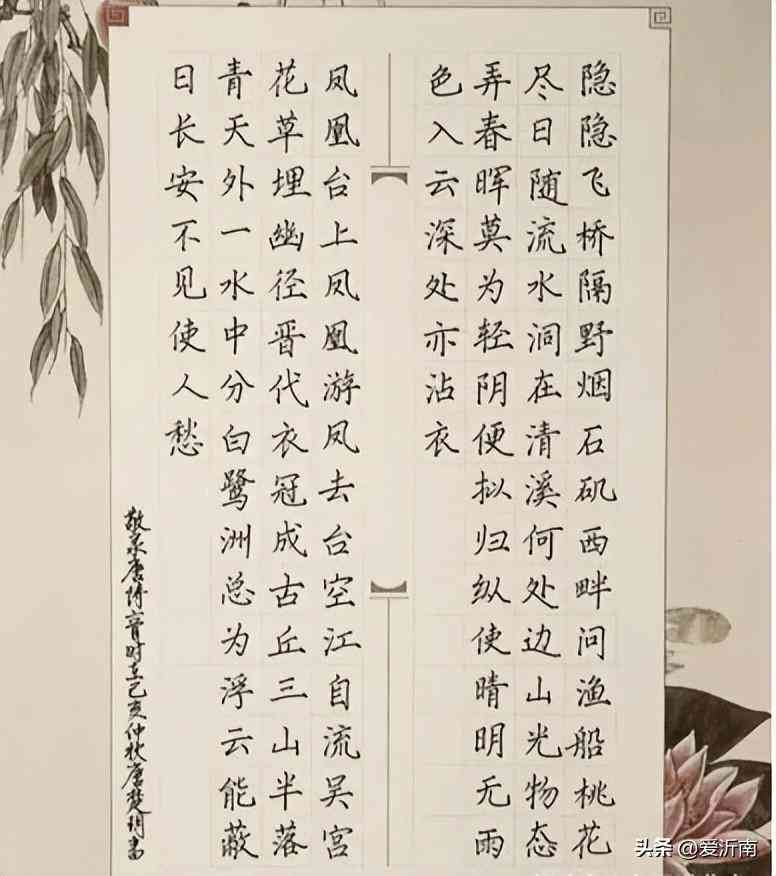 隐隐飞桥隔野烟石矶西畔问渔船桃花
尽日随流水洞在清溪何处边山光物态
弄春晖莫为轻阴便拟归纵使晴明无雨
色入云深处亦沾衣
凤凰台上凤凰游凤去台空江自流吴宫
花草埋幽径晋代衣冠成古丘三山半落
青天外一水中分白鹭洲总为浮云能蔽
日长安不见使人愁
敬录唐诗二首时在己亥仲秋唐楚玥书
头条 @爱沂南